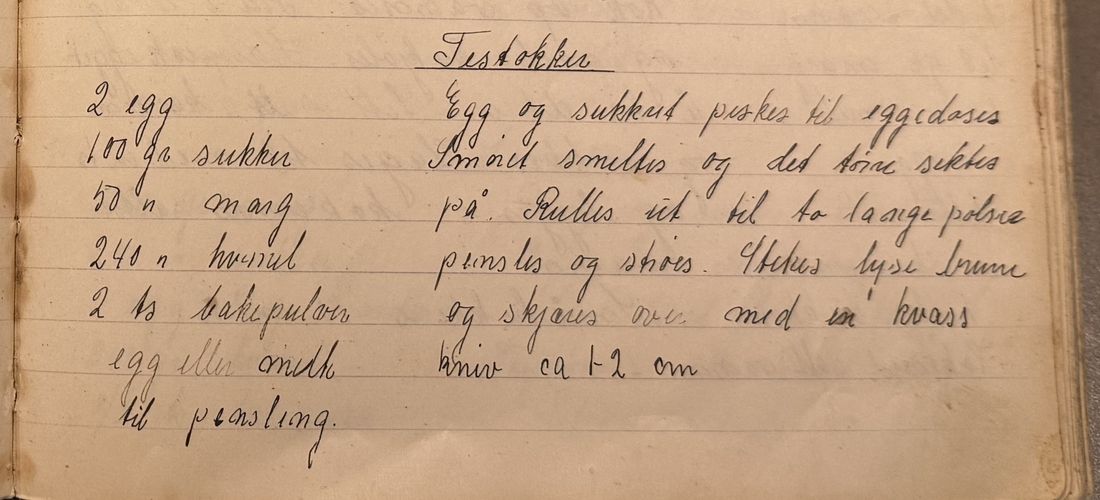 Testokker
2 egg
100 gr sukker
50 " marg
240 " hvemel
2 ts bakepulver
egg eller melk
til pensling.
Egg og sukkret piskes til eggedosis
Smøret smeltes og det tørre siktes
på. Rulles ut til to lange pølser
pensles og strøes. Stekes lyse brune
og skjæres over med en kvass
kniv ca 1-2 cm